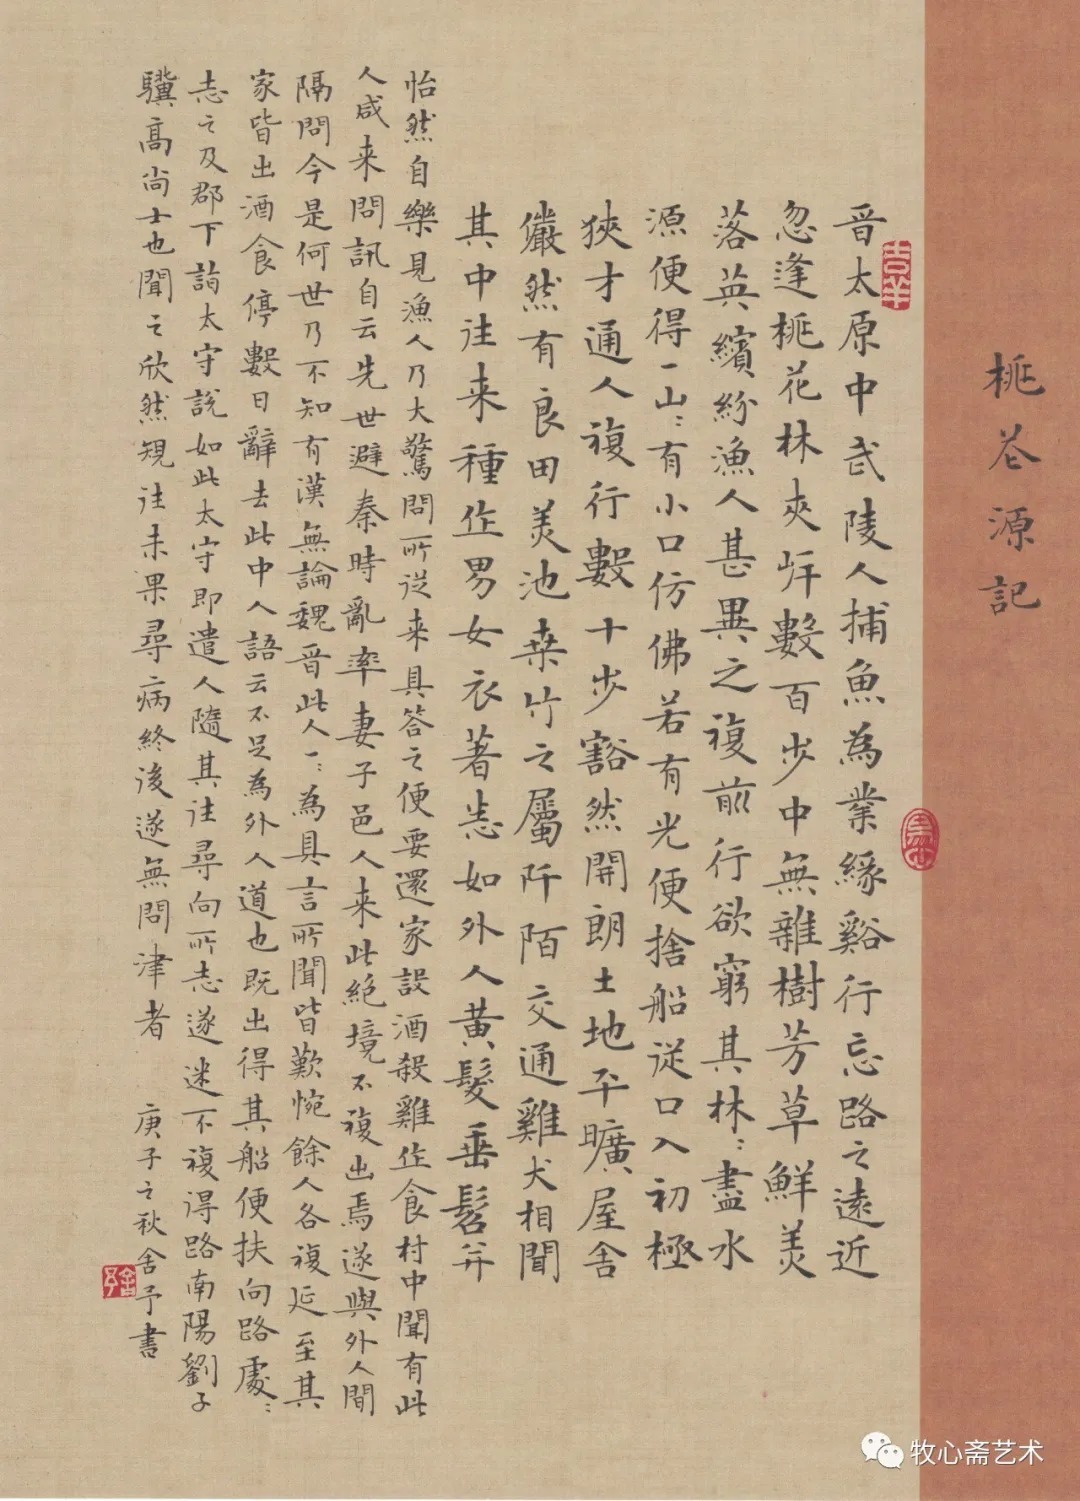 桃花源記
晉太原中武陵人捕魚為業緣谿行忘路之遠近
忽逢桃花林夾岸數百步中無雜樹芳草鮮美
落英繽紛漁人甚異之復前行欲窮其林〻盡水
源便得一山〻有小口仿佛若有光便捨船從口入初極
狹才通人複行數十步豁然開朗土地平曠屋舍
儼然有良田美池桑竹之屬阡陌交通雞犬相聞
其中往来種作男女衣著悉如外人黃髮垂髫并
怡然自樂見漁人乃大驚問所從来具答之便要還家設酒殺雞作食村中聞有此
人咸来問訊自云先世避秦時亂率妻子邑人来此絕境不複出焉遂與外人間
隔問今是何世乃不知有漢無論魏晉此人一〻為具言所聞皆歎惋餘人各複延至其
家皆出酒食停數日辭去此中人語云不足為外人道也既出得其船便扶向路處〻
志之及郡下詣太守説如此太守即遣人隨其往尋向所志遂迷不複得路南陽劉子
驥高尚士也聞之欣然規往未果尋病終後遂無問津者 庚子之秋舍予書
吉羊
牧心斋艺术